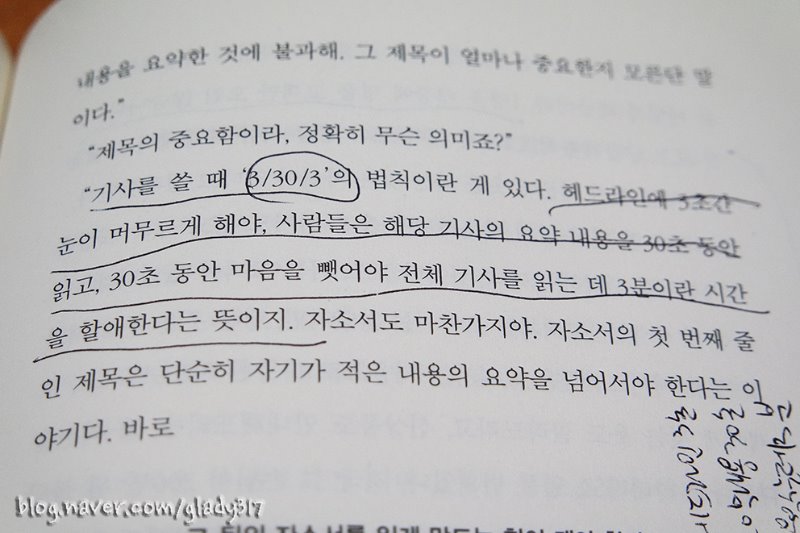 내용을 요약한 것에 불과해. 그 제목이 얼마나 중요한지 모른단 말
이다.”
“제목의 중요함이라, 정확히 무슨 의미죠?”
“기사를 쓸 때 ‘3/30/3’의 법칙이란 게 있다. 헤드라인에 3초간
눈이 머무르게 해야, 사람들은 해당 기사의 요약 내용을 30초 동안
읽고, 30초 동안 마음을 뺏어야 전체 기사를 읽는 데 3분이란 시간
을 할애한다는 뜻이지. 자소서도 마찬가지야. 자소서의 첫 번째 줄
인 제목은 단순히 자기가 적은 내용의 요약을 넘어서야 한다는 이
야기다. 바로
blog.naver.com/glady317